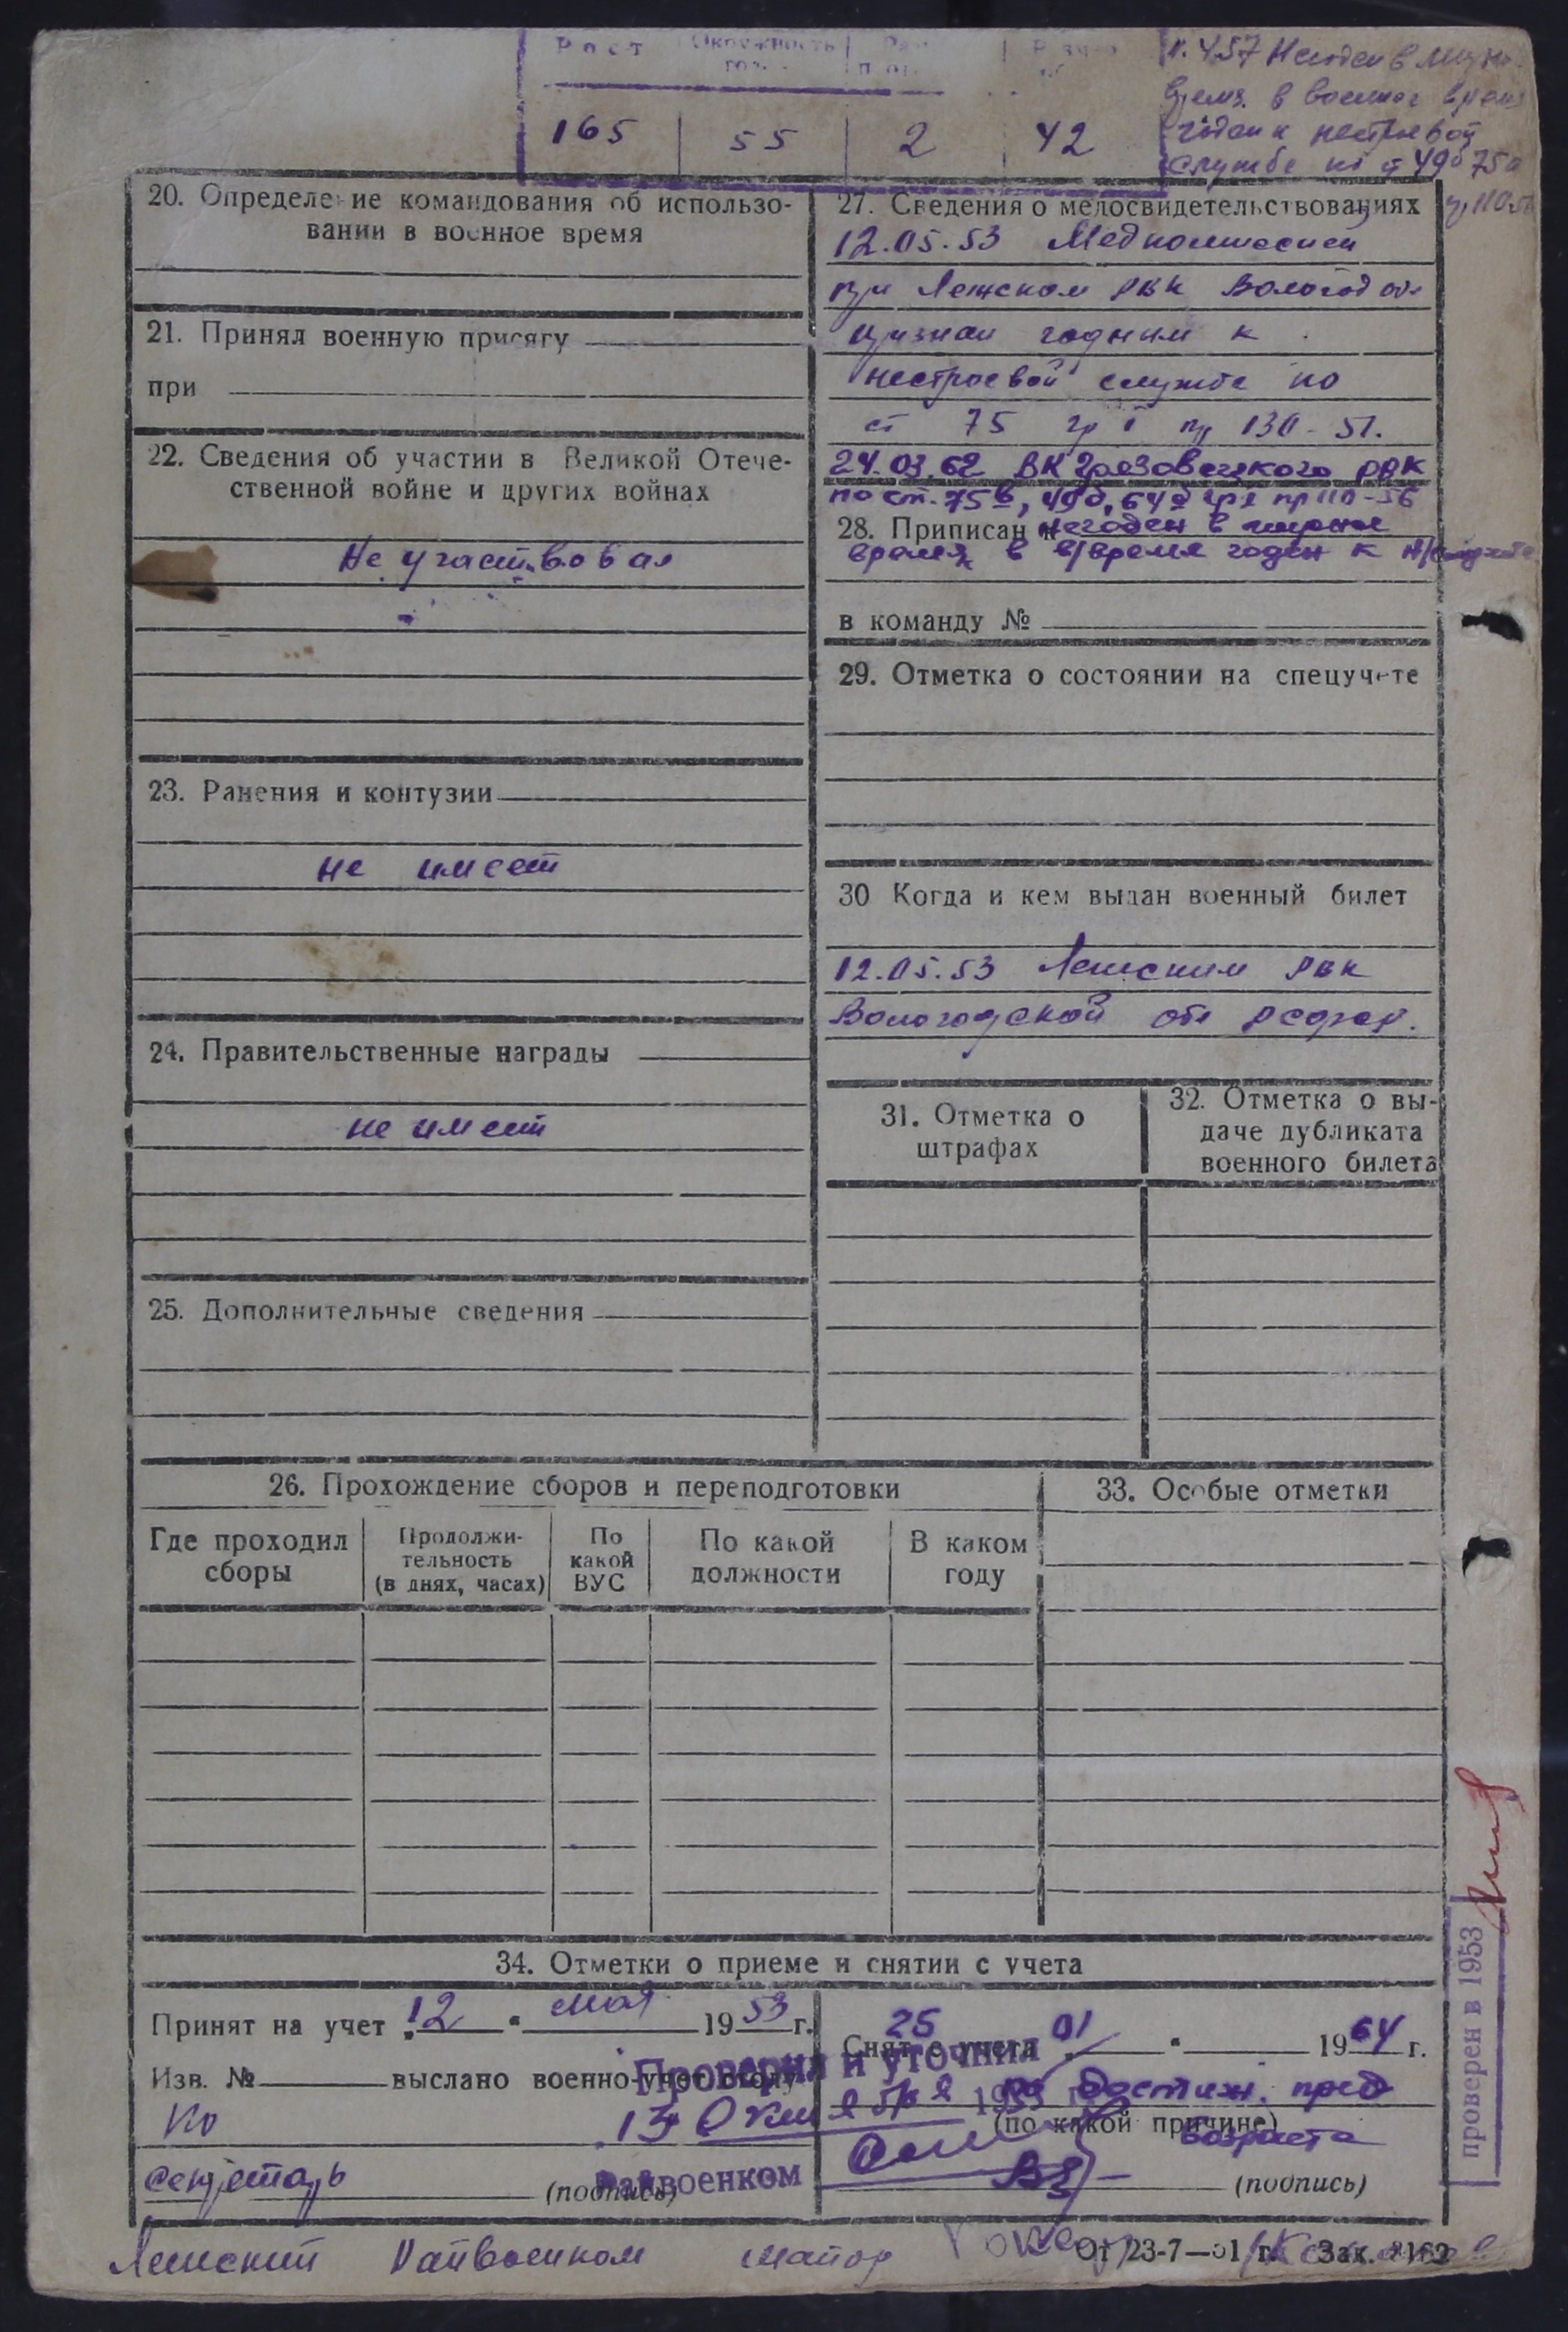 Рост Окружность
165 55 2 42
в военное время
годен к нестроевой
службе по ст 49б 75в
20. Определение командования об использо-
вании в военное время
21. Принял военную присягу
при
22. Сведения об участии в Великой Отече-
ственной войне и других войнах
Не участвовал
23. Ранения и контузии
не имеет
24. Правительственные награды
не имеет
25. Дополнительные сведения
27. Сведения о медосвидетельствованиях
12.05.53 Медкомиссией
при Лежском РВК Вологод обл
признан годным к
нестроевой службе по
ст 75 гр I пр 130-51.
24.03.62 ВК Грязовецкого РВК
по ст. 75в, 49б, 64 пр 110-56
28. Приписан
негоден в мирное
время, в в/время годен к н/службе
в команду №
29. Отметка о состоянии на спецучете
30 Когда и кем выдан военный билет
12.05.53 Лежским РВК
Вологодской обл РСФСР.
31. Отметка о
штрафах
32. Отметка о вы-
даче дубликата
военного билета
26. Прохождение сборов и переподготовки
Где проходил
сборы
Продолжи-
тельность
(в днях, часах)
По
какой
ВУС
По какой
должности
В каком
году
33. Особые отметки
34. Отметки о приеме и снятии с учета
Принят на учет „12“ мая 1953 г.
Изв. № выслано военно-учет. столу
секретарь
(подпись)
Снят с учета 25 01 1964 г.
по достиж. пред
(по какой причине)
возраста
(подпись)
Проверил и уточнил
13 октября 195 г
Райвоенком
проверен в 1953
Лежский Райвоенком майор
От 23-7—51 г. Зак. 2162